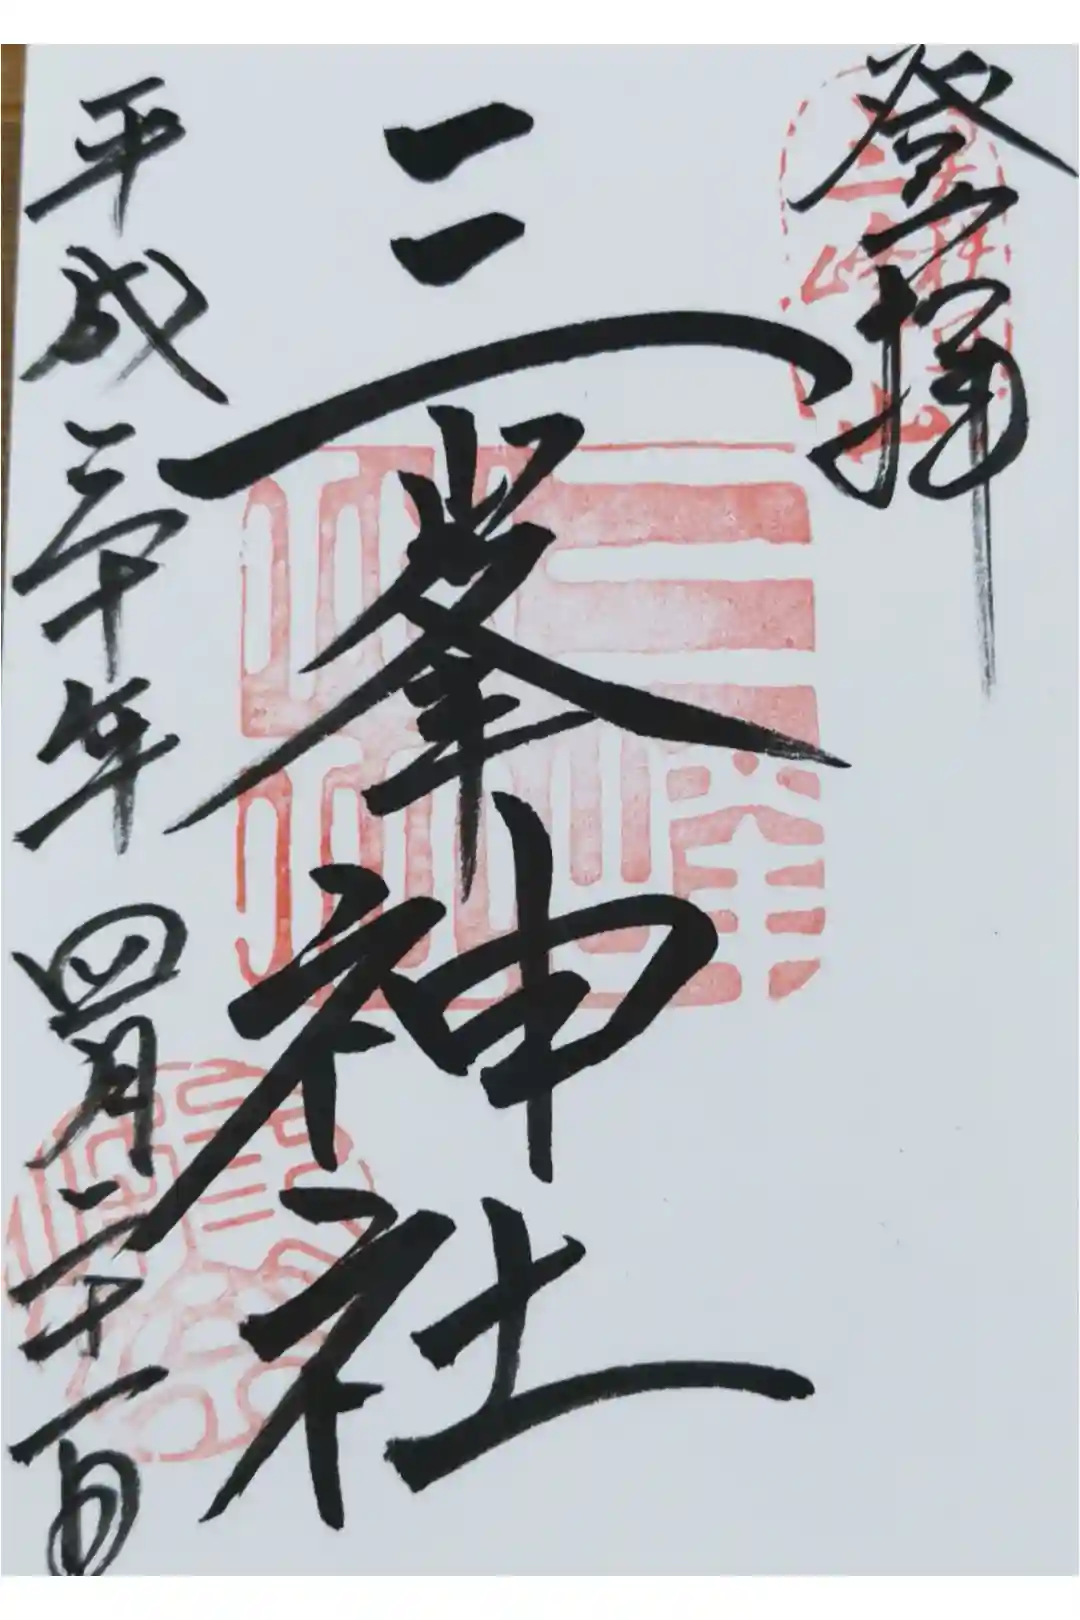 登拝
三峯神社
平成三十年四月二十一日